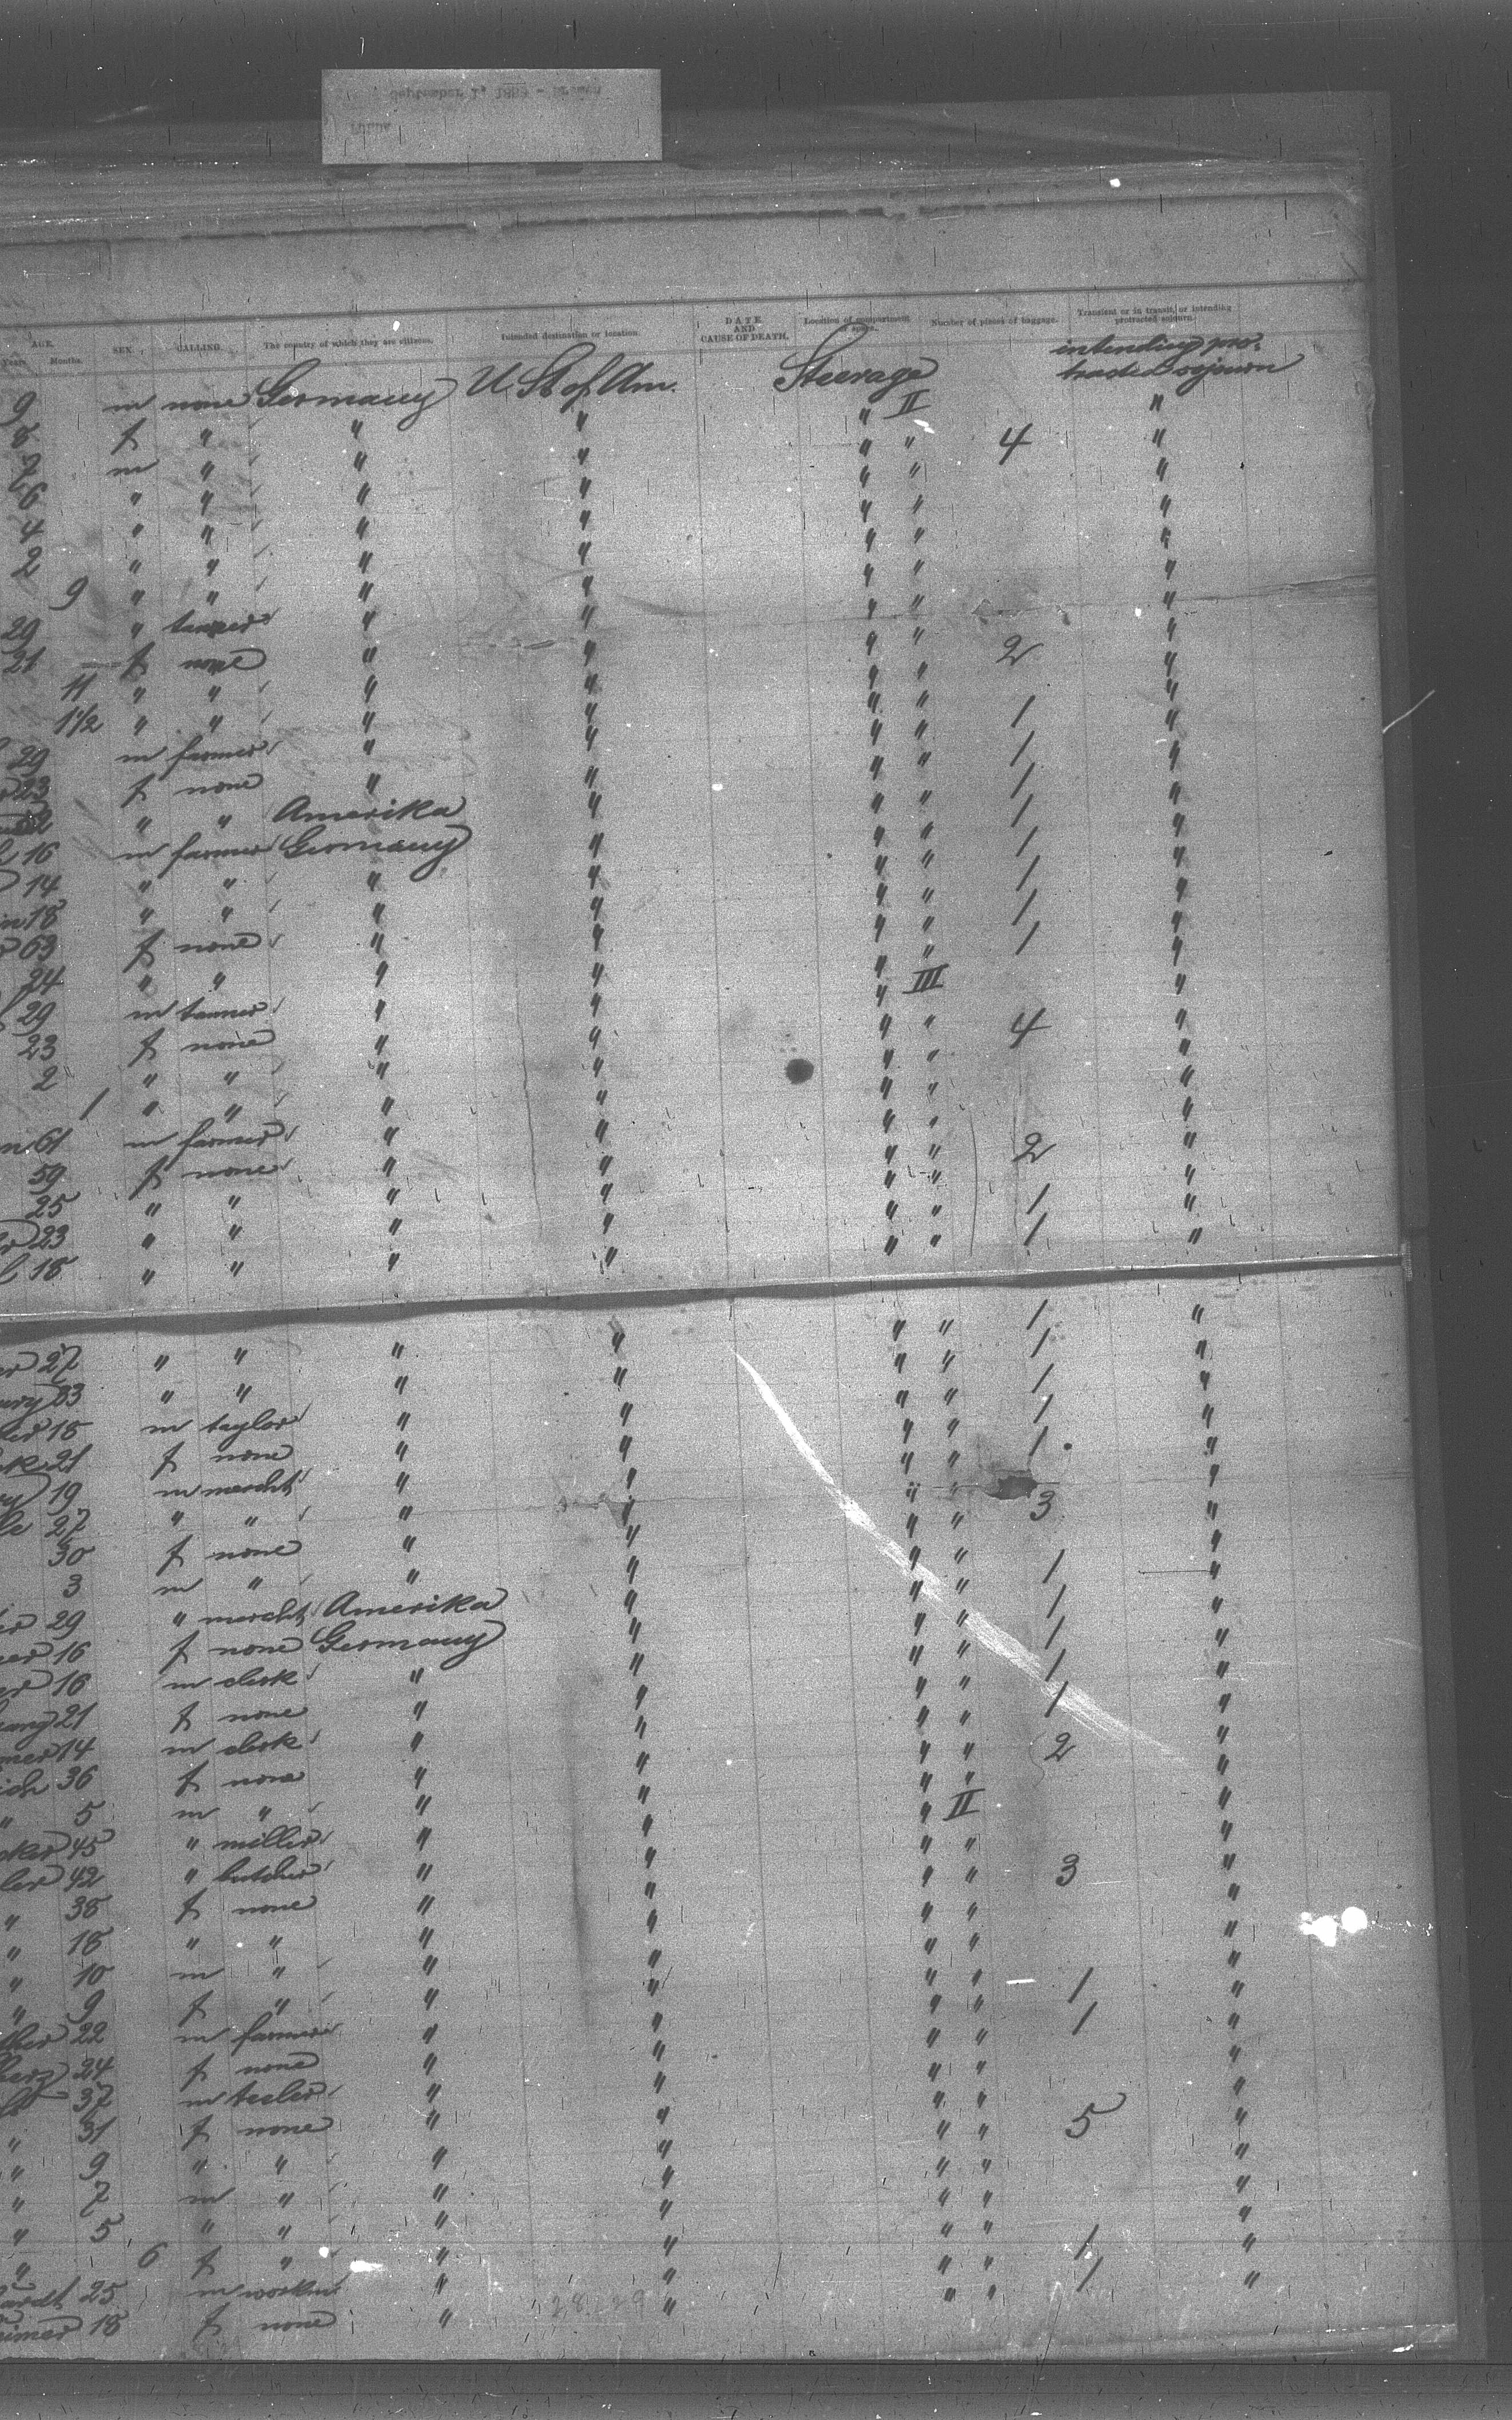 September 1, 1889 - Bremen
FULDA
AGE. SEX. CALLING. The country of which they are citizens. Intended destination or location. DATE AND CAUSE OF DEATH. Location of compartment or space. Number of pieces of baggage. Transient or in transit, or intending protracted sojourn.
Years. Months.
9 m none Germany U. St. of Am. Steerage II intending protracted sojourn
8 f " " " " " 4 "
7 m " " " " " "
6 " " " " " " "
4 " " " " " " "
2 " " " " " " "
9 " " " " " " "
29 " tanner " " " " "
21 f none " " " " 2 "
11 " " " " " " "
1 1/2 " " " " " " 1 "
29 m farmer " " " " 1 "
23 f none " " " " 1 "
" " Amerika " " " 1 "
16 m farmer Germany " " " 1 "
14 " " " " " " 1 "
18 " " " " " " 1 "
63 f none " " " " 1 "
24 " " " " " III "
29 m tanner " " " " 4 "
23 f none " " " " "
2 " " " " " " "
1 " " " " " " "
61 m farmer " " " " 2 "
59 f none " " " " "
25 " " " " " " 1 "
23 " " " " " " 1 "
18 " " " " " "
27 " " " " " " 1 "
23 " " " " " " 1 "
18 m taylor " " " " 1 "
21 f none " " " " 1 "
19 m mercht " " " " 1 "
27 " " " " " " 3 "
30 f none " " " " "
3 m " " " " " "
29 " mercht Amerika " " " 1 "
16 f none Germany " " " 1 "
16 m clerk " " " " 1 "
21 f none " " " " 1 "
14 m clerk " " " " 1 "
36 f none " " " " 2 "
" 5 m " " " " " "
45 " miller " " " II "
42 " butcher " " " " 3 "
" 38 f none " " " " "
" 18 " " " " " " "
" 10 m " " " " " "
" 9 f " " " " " "
22 m farmer " " " " 1 "
24 f none " " " " 1 "
37 m " " " " "
" 31 f none " " " " 5 "
" 9 " " " " " " "
" 7 m " " " " " "
" 5 " " " " " " "
" 6 f " " " " " "
25 m workm " " " " 1 "
18 f none " " " " 1 "